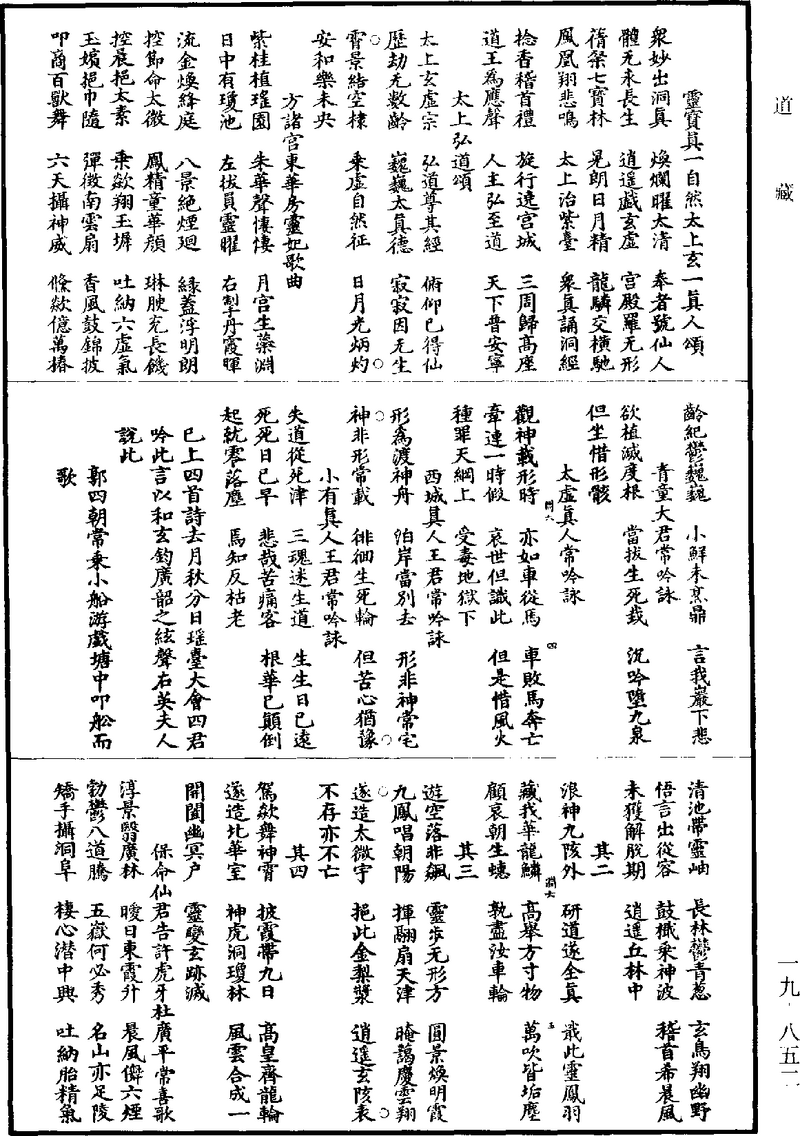 道藏
靈寶真一自然太上玄一真人頌
衆妙出洞真　煥爛曜太清　奉者號仙人
體无永長生　逍遥戲玄虚　宫殿羅无形
蒨粲七寶林　晃朗日月精　龍驎交橫馳
鳳凰翔悲鳴　太上治紫臺　衆真誦洞經
捻香稽首禮　旋行遶宫城　三周歸高座
道王為應聲　人主弘至道　天下普安寧
太上弘道頌
太上玄虚宗　弘道尊其經　俯仰已得仙
歷劫无數齡　巍巍太真德　寂寂因无生
霄景結空棲　乘虚自然征　日月光炳灼
安和樂未央
方諸宫東華房靈妃歌曲
紫桂植瑶園　朱華聲悽悽　月宫生蘂淵
日中有瓊池　左拔員靈曜　右掣丹霞暉
流金煥絳庭　八景絶煙迴　緑蓋浮明朗
控節命太微　鳳精童華顔　琳腴充長饑
控晨挹太素　乘欻翔玉墀　吐納六虚氣
玉嬪挹巾隨　彈徵南雲扇　香風鼓錦披
叩商百獸舞　六天攝神威　倏欻億萬椿
齡紀鬱巍巍　小鮮未烹鼎　言我巖下悲
青童大君常吟詠
欲植滅度根　當拔生死栽　沉吟墮九泉
但坐惜形骸
太虚真人常吟詠
觀神載形時　亦如車從馬　車敗馬奔亡
牽連一時假　哀世但識此　但是惜風火
種罪天網上　受毒地獄下
西城真人王君常吟詠
形為渡神舟　泊岸當別去　形非神常宅
神非形常載　徘徊生死輪　但苦心猶豫
小有真人王君常吟詠
失道從死津　三魂迷生道　生生日已遠
死死日已早　悲哉苦痛客　根華已顛倒
起就零落塵　焉知反枯老
已上四首詩去月秋分日瑶臺大會四君
吟此言以和玄鈞廣韶之絃聲右英夫人
說此
郭四朝常乘小船游戲塘中叩舩而
歌
清池帶靈岫　長林鬱青葱　玄鳥翔幽野
悟言出從容　鼓檝乘神波　稽首希晨風
未獲解脫期　逍遥丘林中
其二
浪神九陔外　研道遂全真　戢此靈鳳羽
藏我華龍鱗　高舉方寸物　萬吹皆垢塵
顧哀朝生蟪　孰盡汝車輪
其三
遊空落非飊　靈步无形方　圓景煥明霞
九鳳唱朝陽　揮翮扇天津　晻藹慶雲翔
遂造太微宇　挹此金梨漿　逍遥玄陔表
不存亦不亡
其四
駕欻舞神霄　披霞帶九日　高皇齊龍輪
遂造北華室　神虎洞瓊林　風雲合成一
開闔幽冥户　靈變玄跡滅
保命仙君告許虎牙杜廣平常喜歌
淳景翳廣林　曖日東霞升　晨風儛六煙
勃鬱八道騰　五嶽何必秀　名山亦足陵
矯手攝洞阜　棲心潛中興　吐納胎精氣